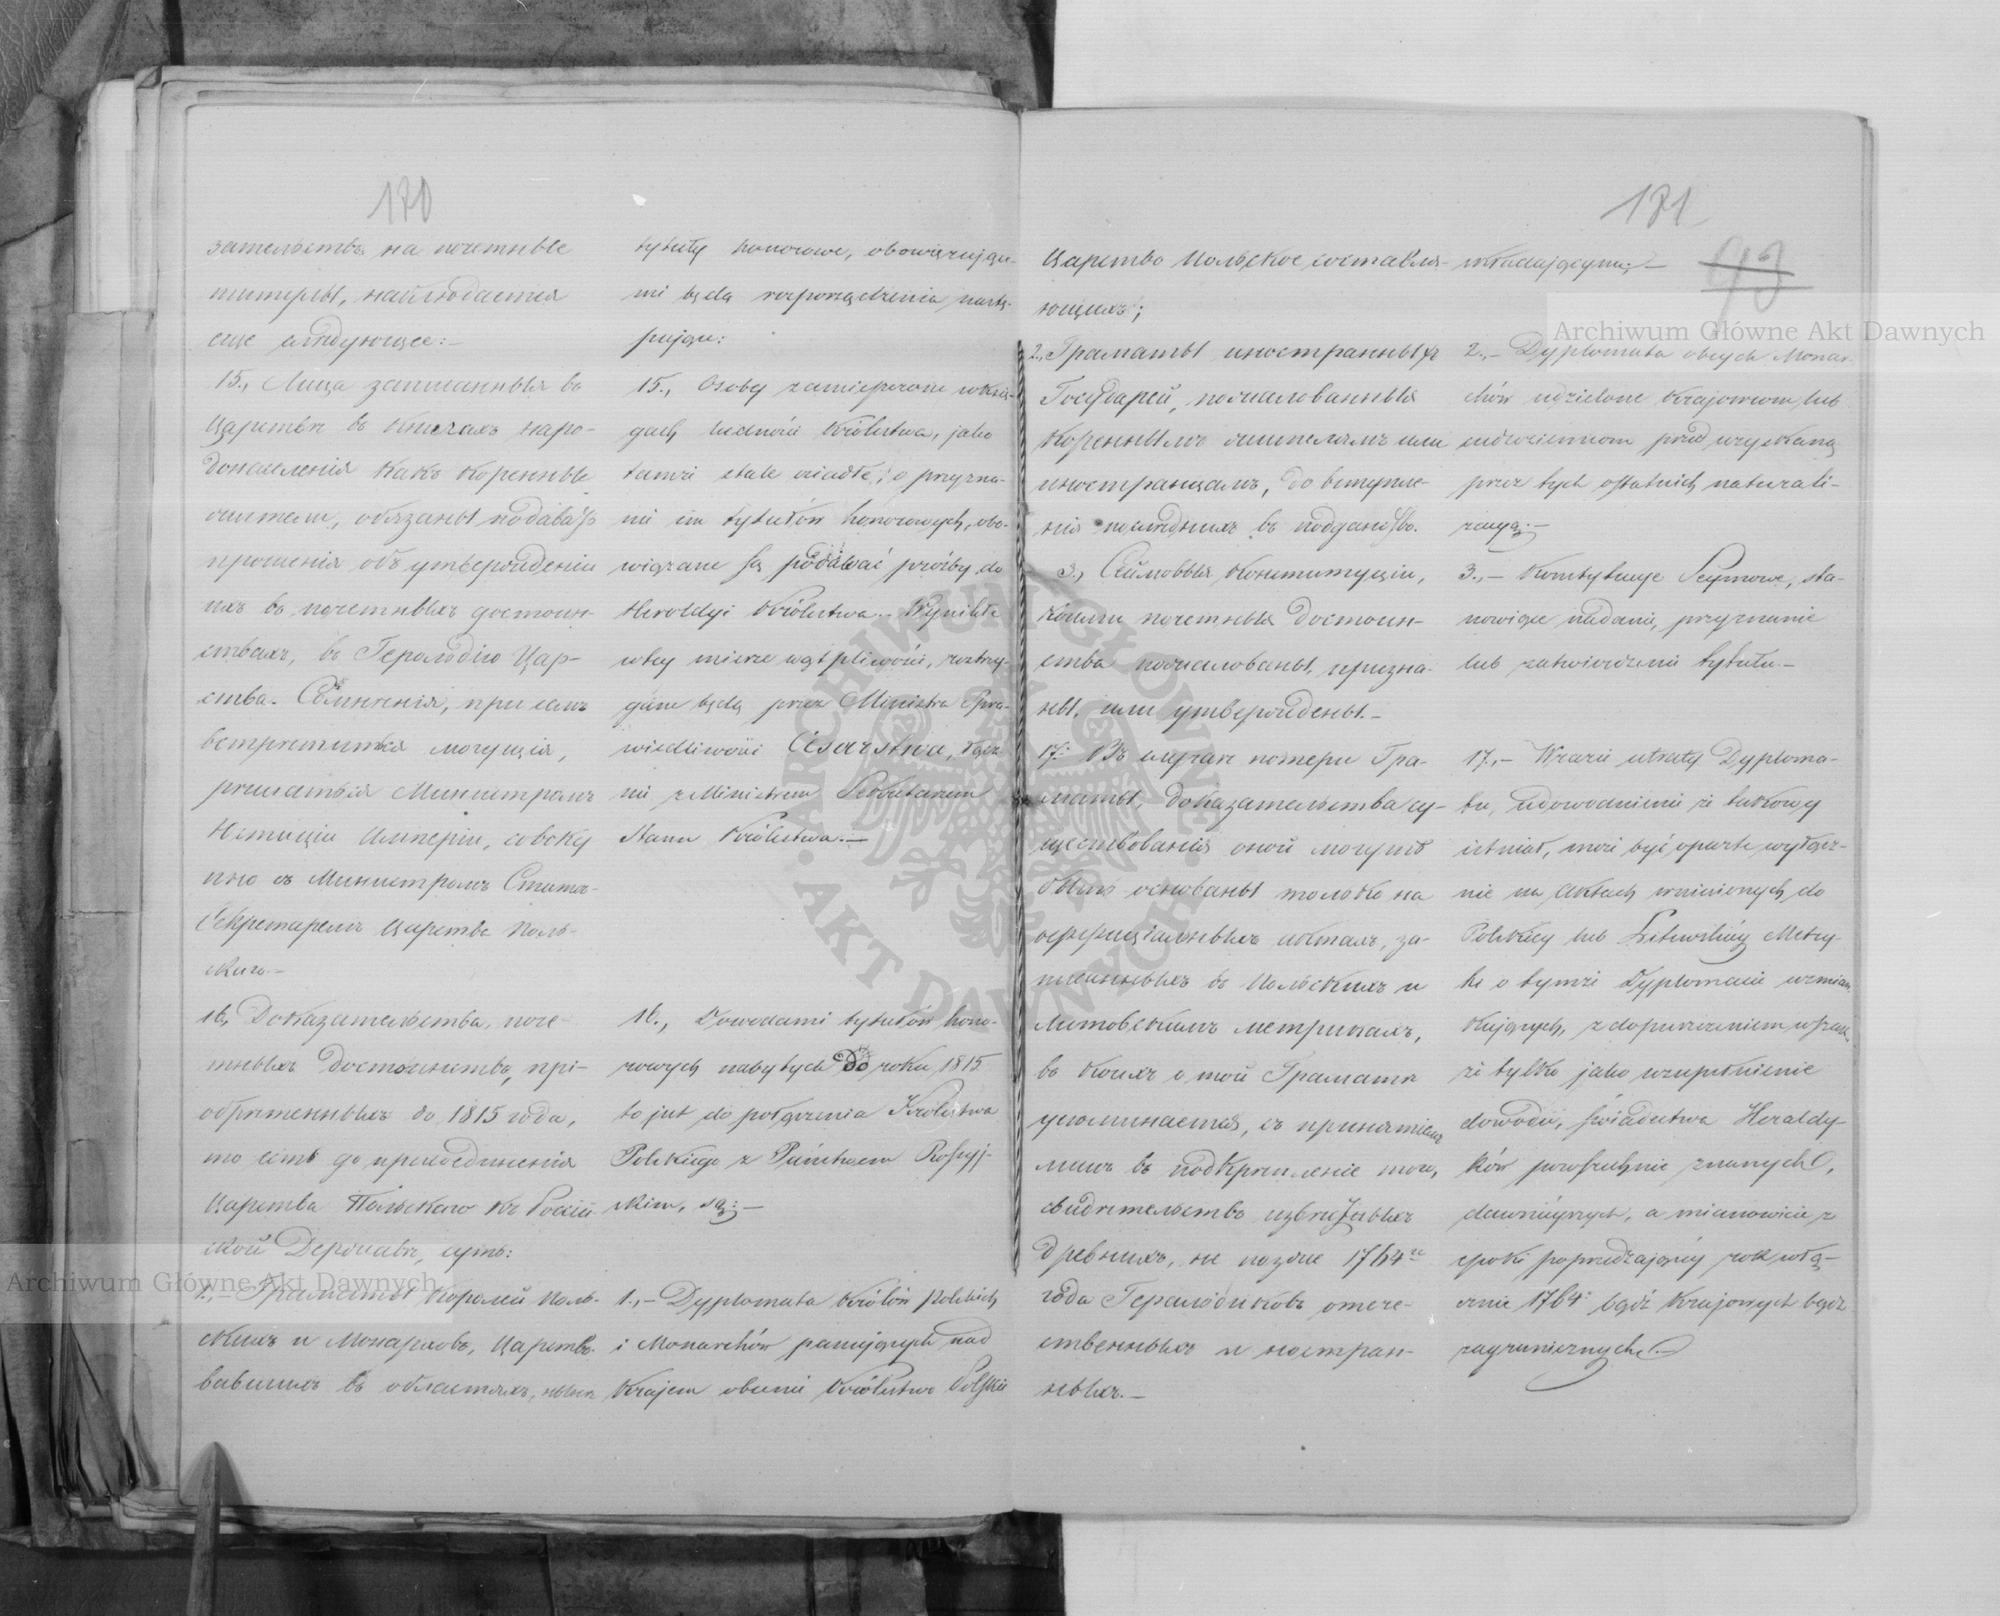 170
зательствъ на почетные
титулы, наблюдается
еще слѣдующее:-
15., Лица записанныя въ
Царствѣ въ книгахъ наро-
донаселенія какъ коренные
жители, обязаны подавать
прошенія объ утвержденіи
ихъ въ почетныхъ достоин-
ствахъ, въ Герольдію Цар-
ства. Сомнѣнія, при семъ
встрѣтиться могущія,
рѣшаются Министромъ
Юстиціи Имперіи, совоку
пно съ Министромъ Статсъ-
Секретаремъ Царства Поль-
скаго.-
16, Доказательства, поче-
тныхъ достоинствъ, прі-
обрѣтенныхъ до 1815 года,
то есть до присоединенія
Царства Польскаго къ Россій-
ской Державѣ, суть:
1.,- Грамматы Королей Поль-
скихъ и Монарховъ, Царство-
вавшихъ въ областяхъ, нынѣ
tytuły honorowe, obowiązujące-
mi będą rozporządzenia nastę-
pujące:
15., Osoby zamieszczone w księ-
gach ludności Królestwa, jako
tamże stale osiadłe, o przyzna-
nie im tytułów honorowych, obo-
wiązane są podawać prośby do
Heroldyi Królestwa.- Wynikłe
w tej mierze wątpliwości, roztrzy-
gane będą przez Ministra Spra-
wiedliwości Cesarstwa, łącz
nie z Ministrem Sekretarzem
Stanu Królestwa.-
16., Dowodami tytułów hono-
rowych nabytych do roku 1815
to jest do połączenia Królestwa
Polskiego z Państwem Rossyj-
skim, są:-
1.,- Dyplomata Królów Polskich
i Monarchów panujących nad
Krajem obecnie Królestwo Polskie
181
93
Царство Польское составля-
ющихъ;
2., Грамматы иностранныхъ
Государей, пожалованныя
кореннымъ жителямъ или
иностранцамъ, до вступле-
нія послѣднихъ въ подданство.
3., Сеймовыя Конституціи,
коими почетныя достоин-
ства пожалованы, призна-
ны, или утверждены.-
17. Въ случаѣ потери Гра-
мматы, доказательства су-
ществованія оной могутъ
быть основаны только на
оффиціальныхъ актахъ, за-
писанныхъ въ Польскихъ и
Литовскихъ метрикахъ,
въ коихъ о той Грамматѣ
упоминается, съ принятіемъ
лишь въ подкрѣпленіе того,
свидѣтельствъ извѣстныхъ
древнихъ, не позже 1764го
года Геральдиковъ отече-
ственныхъ и иностран-
ныхъ.-
składającym;-
2.,- Dyplomata obcych Monar-
chów udzielone Krajowcom lub
cudzoziemcom przed uzyskaną
przez tych ostatnich naturali-
zacyą;-
3.,- Konstytucye Seymowe, sta-
nowiące nadanie, przyznanie
lub zatwierdzenie tytułu.-
17.,- W razie utraty Dyploma-
tu, udowodnienie że takowy
istniał, może być oparte wyłącz-
nie na aktach wniesionych do
Polskiey lub Litewskiey Metry-
ki o tymże Dyplomacie wzmian-
kujących, z dopuszczeniem wszak-
że tylko jako uzupełnienie
dowodu, świadectwa Heraldy-
ków powszechnie znanych,
dawniejszych, a mianowicie z
epoki poprzedzającéy rok włą-
cznie 1764. bądź Krajowych bądź
zagranicznych.-
Archiwum Główne Akt Dawnych
Archiwum Główne Akt Dawnych
ARCHIWUM GŁÓWNE · AKT DAWNYCH ·